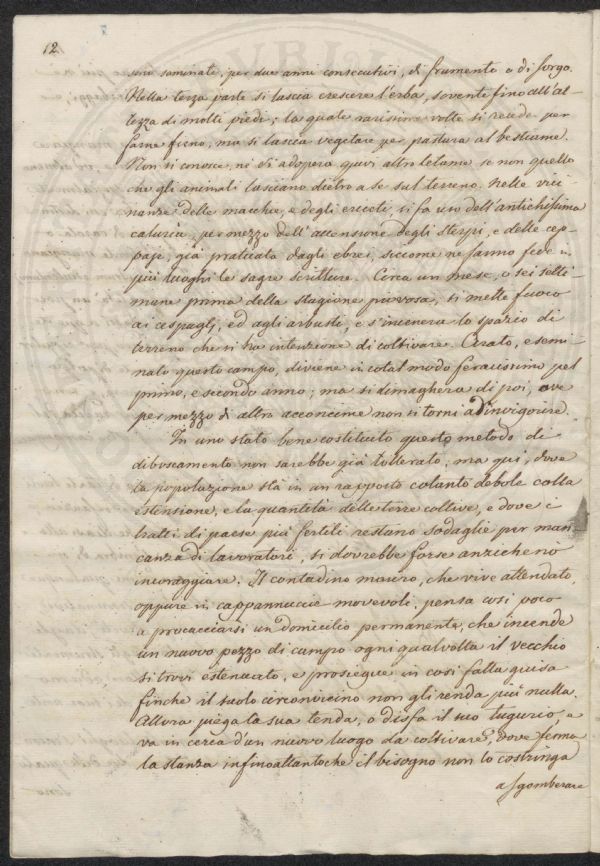 12
sino seminate, per due anni consecutivi, di frumento o di sorgo.
Nella terza parte si lascia crescere l'erba, sovente fino all'al-
tezza di molti piedi; la quale rarissime volte si recide per
farne fieno, ma si lascia vegetare per pastura al bestiame.
Non si conosce, nè si adopera quivi altro letame se non quello
che gli animali lasciano dietro a se sul terreno. Nelle vici-
nanze delle macchie, e degli ericeti, si fa uso dell'antichissima
caluria, per mezzo dell'accensione degli sterpi, e delle cep-
paje, già praticata dagli ebrei, siccome ne fanno fede in
più luoghi le sagre scritture. Circa un mese, o sei setti-
mane prima della stagione piovosa, si mette fuoco
ai cespugli, ed agli arbusti, e s'incenera lo spazio di
terreno che si ha intenzione di coltivare. Arato, e semi-
nato questo campo, diviene in cotal modo feracissimo pel
primo, e secondo anno; ma si dimagherà di poi, ove
per mezzo di altro acconcime non si torni ad invigorire.
In uno stato bene costituito questo metodo di
diboscamento non sarebbe già tollerato, ma qui, dove
la popolazione stà in un rapporto cotanto debole colla
estensione, e la quantità delle terre coltive, e dove i
tratti di paese più fertili restano sodaglie per man-
canza di lavoratori, si dovrebbe forse anzicheno
incoraggiare. Il contadino mauro, che vive attendato,
oppure in cappannuccie movevoli, pensa così poco
a procacciarsi un domicilio permanente, che incende
un nuovo pezzo di campo ogni qualvolta il vecchio
si trovi estenuato, e prosiegue in così fatta guisa
finche il suolo circonvicino non gli renda più nulla.
Allora piega la sua tenda, o disfa il suo tugurio, e
va in cerca d'un nuovo luogo da coltivare, dove ferma
la stanza infinoattantoche il bisogno non lo costringa
a sgomberare